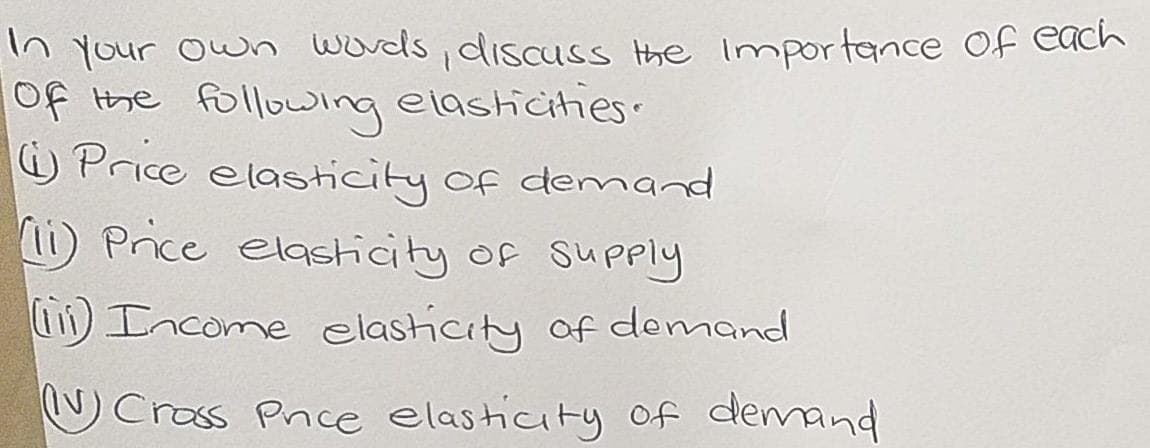 In your own words, discuss the importance of each
of the following elasticities.
(i) Price elasticity of demand
(ii) Price elasticity of supply
(iii) Income elasticity of demand
(iv) Cross Price elasticity of demand